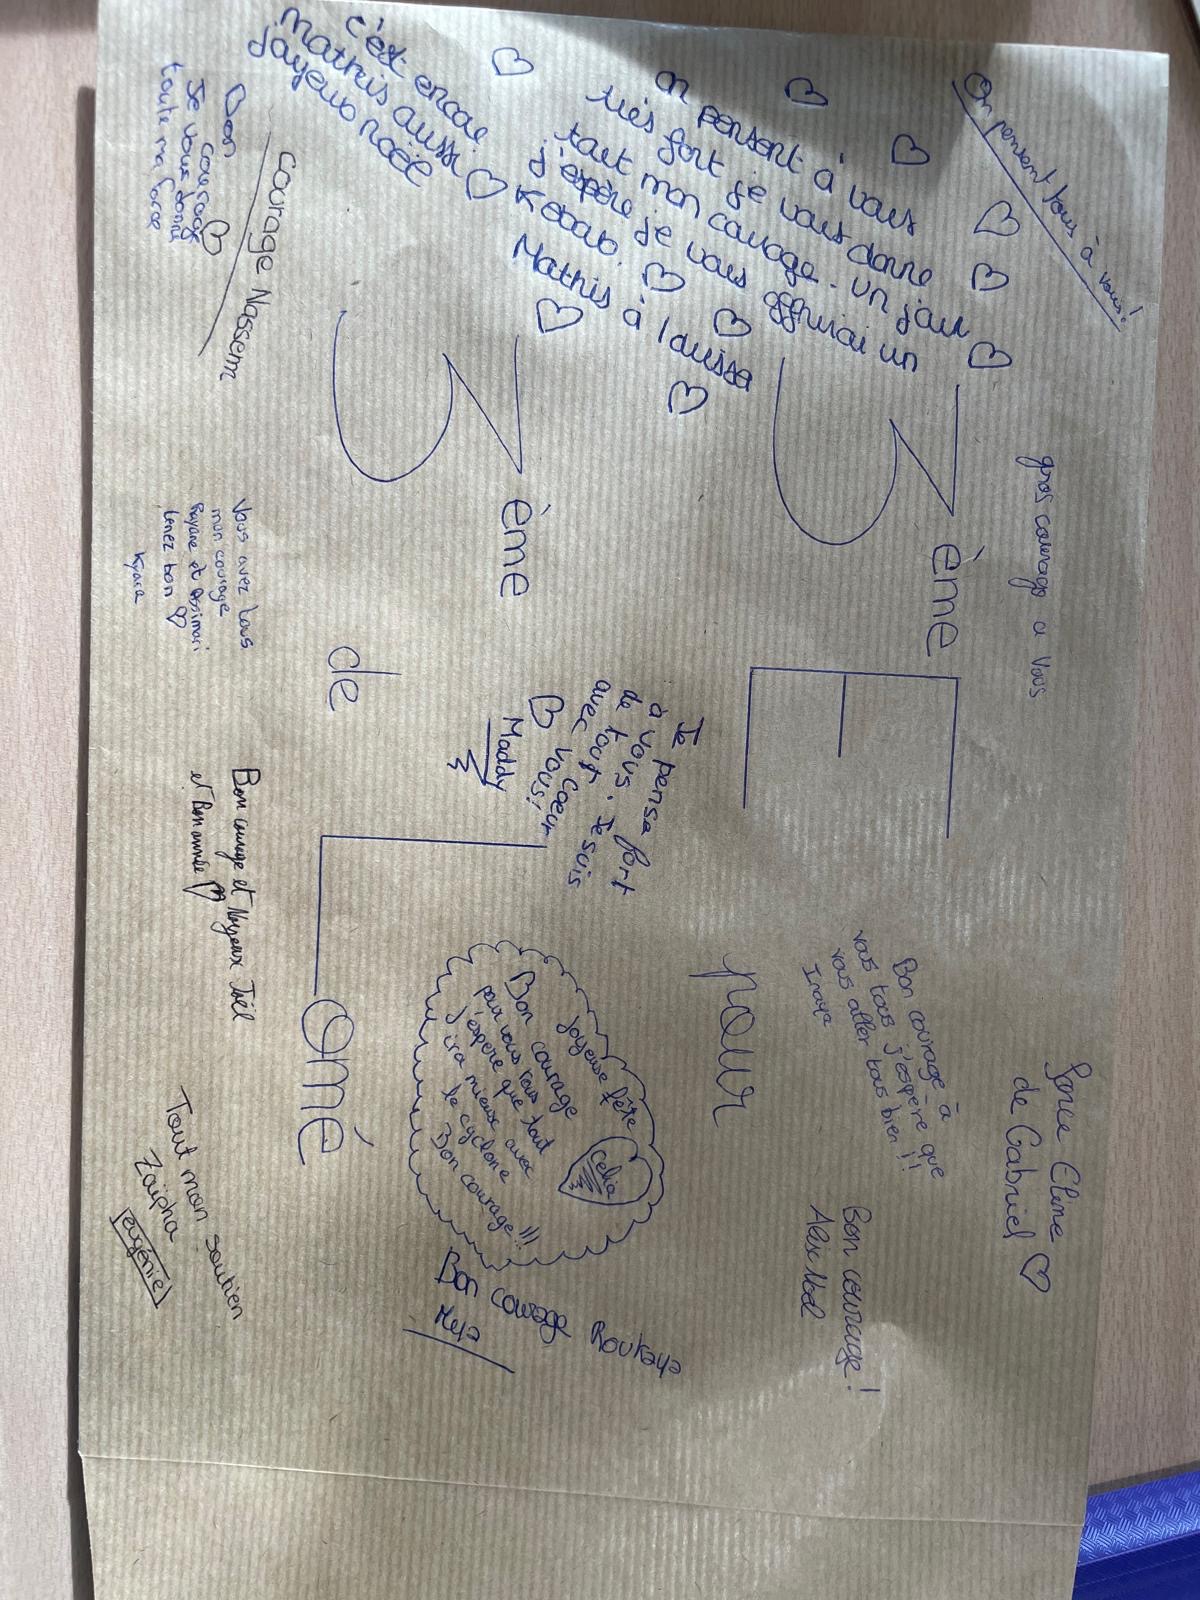 On pensent tous à vous!
gros courage a vous
Force Eline
de Gabriel ♡
on pensent à vous
très fort je vous donne
tout mon courage. un jour
j'espère je vous offrirai un
Kebab.
Mathis à louissa
c'est encore
Mathis aussi
joyeuo noëe
3ème E
pour
3ème de Lomé
Bon courage à
vous tous j'espère que
vous aller tous bien !!
Inaya
Bon courage!
Je pense fort
à vous
de tout coeur
avec vous!
Je suis
Maddy
Joyeuse fête
Celia
Bon courage
pour vous tous
j'espère que tout
ira mieux avec
le cyclone
Bon courage!!!
Bon courage Roukaya
Courage Nassem
Bon
courage ♡
Je vous donne
toute ma force
Vous avez tous
mon courage
Rayane et Assimari
tenez bon ♡
Kyara
Bon courage et Noyeux Joël
et Bon année ♡
Tout mon soutien
Zaïpha
eugénie